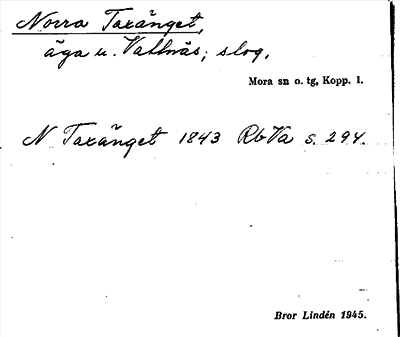 Norra Taxänget,
äga u. Vattnäs; slog.
Mora sn o. tg, Kopp. l.
N Taxänget 1843 RbVa s. 294.
Bror Lindén 1945.